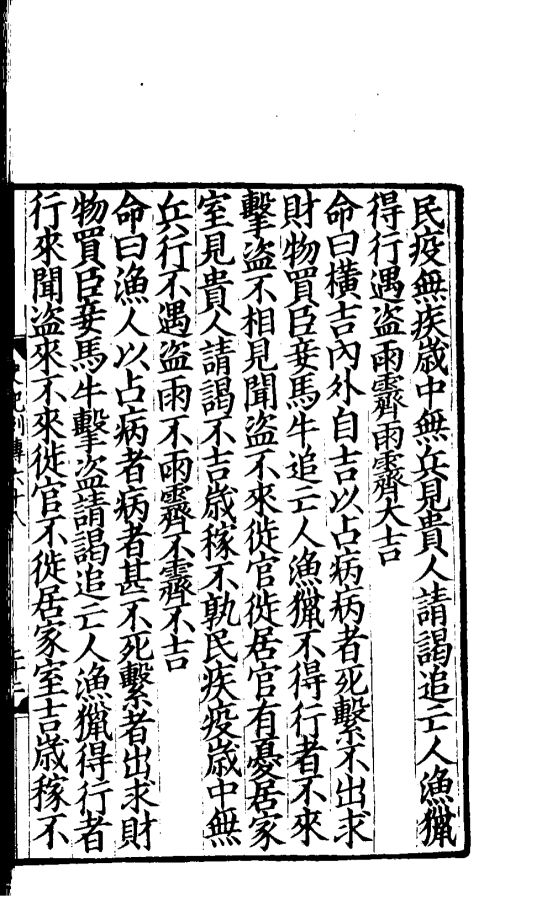 民疫無疾歲中無兵見貴人請謁追亡人漁獵
得行遇盜雨霽雨霽大吉
命曰橫吉內外自吉以占病病者死繫不出求
財物買臣妾馬牛追亡人漁獵不得行者不來
擊盜不相見聞盜不來徙官徙居官有憂居家
室見貴人請謁不吉歲稼不孰民疾疫歲中無
兵行不遇盜雨不雨霽不霽不吉
命曰漁人以占病者病者甚不死繫者出求財
物買臣妾馬牛擊盜請謁追亡人漁獵得行者
行來聞盜來不來徙官不徙居家室吉歲稼不
史記列傳六十八